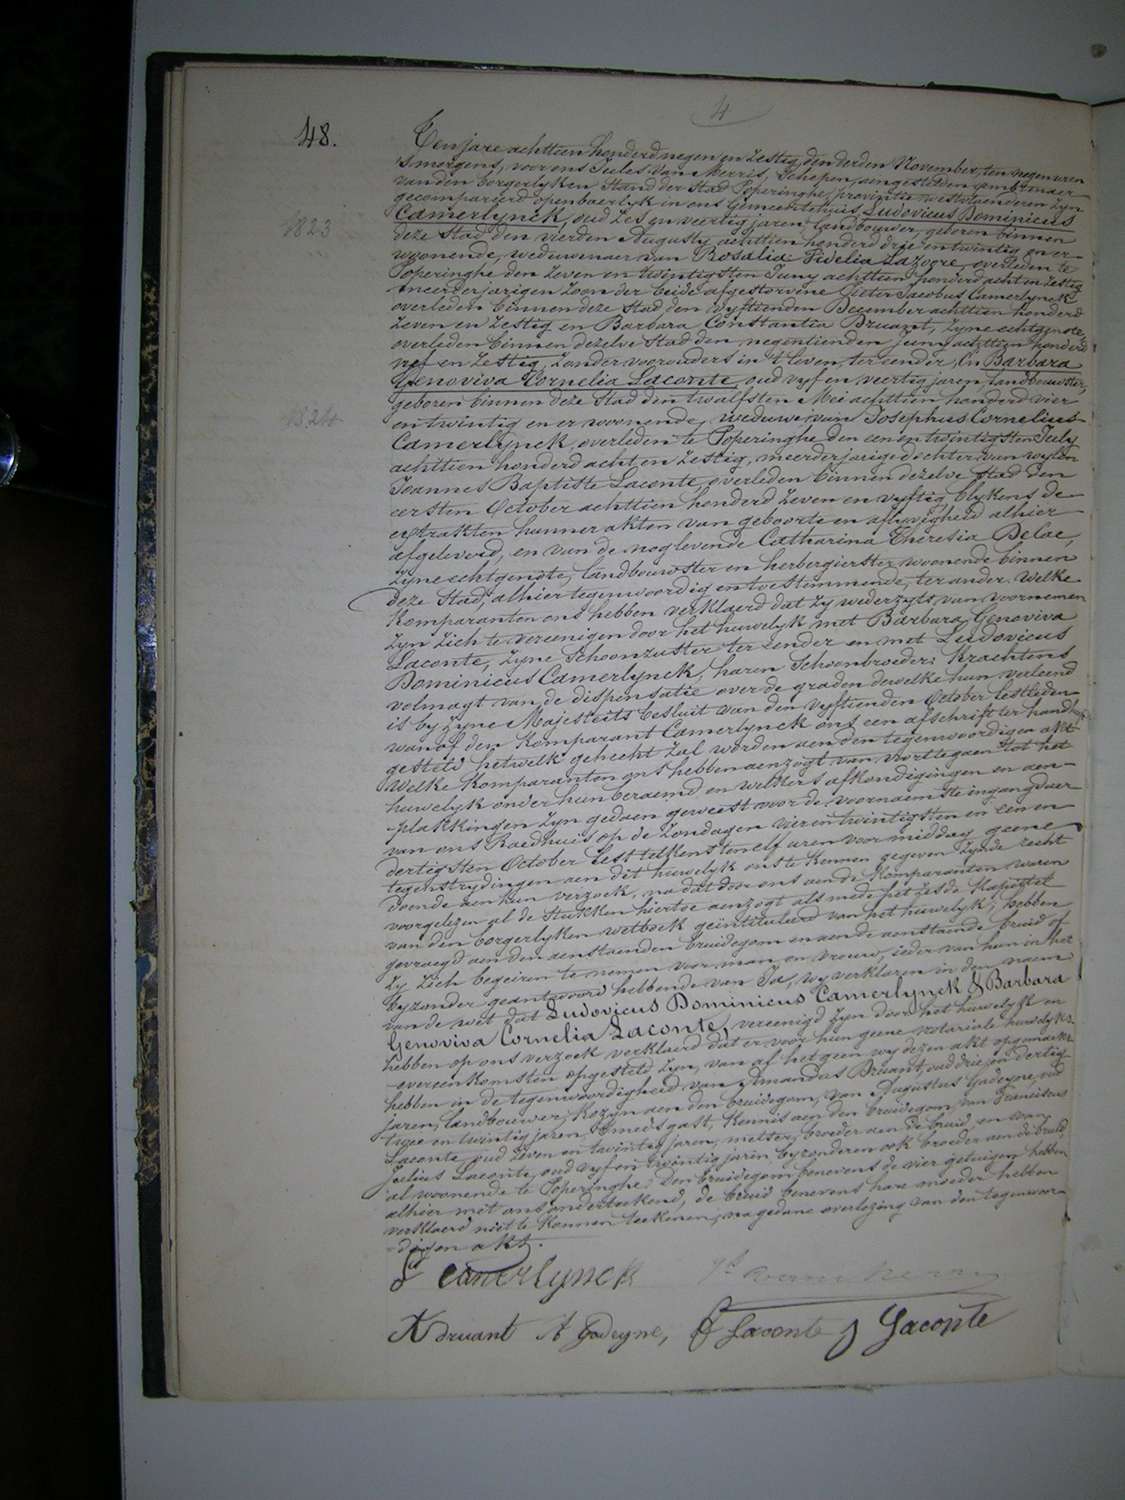 4
48.
Ten jare achttien honderd negen en Zestig, den derden November, ten negen uren
'smorgens, voor ons Jules Van Merris, Schepen, aengestelden ambtenaer
van den borgerlyken Stand der Stad Poperinghe, provintie westvlaenderen zyn
gecompareerd openbaerlyk in ons Gemeentehuis, Ludovicus Dominicus
Camerlynck, oud zes en veertig jaren, landbouwer, geboren binnen
1823
deze Stad den vierden Augusty achttien honderd drie en twintig en er
woonende, weduwenaer van Rosalia Fidelia Lazoore, overleden te
Poperinghe den zeven en twintigsten Juny achttien honderd acht en Zestig
meerderjarigen Zoon der beide afgestorvene Pieter Jacobus Camerlynck
overleden binnen deze Stad den vyftienden December achttien honderd
Zeven en Zestig en Barbara Constantia Bruant, zyne echtgenote,
overleden binnen dezelve Stad den negentienden Juny achttien honderd
vyf en Zestig, Zonder voorouders in 't leven, ter eender, En Barbara
Genoviva Cornelia Laconte, oud vyf en veertig jaren, landbouwster,
geboren binnen deze Stad den twalfsten Mei achttien honderd vier
1824
en twintig en er woonende, weduwe van Josephus Cornelius
Camerlynck, overleden te Poperinghe den een en twintigsten July
achttien honderd acht en Zestig, meerderjarige dochter van wylen
Joannes Baptiste Laconte, overleden binnen dezelve Stad den
eersten October achttien honderd Zeven en vyftig, blykens de
extrakten hunner akten van geboorte en aflyvigheid alhier
afgeleverd, en van de nog levende Catharina Theresia Delae,
zyne echtgenote, landbouwster en herbergierster, woonende binnen
deze Stad, alhier tegenwoordig en toestemmende, ter ander. Welke
Komparanten ons hebben verklaerd dat zy wederzyts van voornemen
zyn zich te vereenigen door het huwelyk met Barbara Genoviva
Laconte, zyne Schoonzuster ter eender en met Ludovicus
Dominicus Camerlynck, haren Schoonbroeder; Krachtens
volmagt van de dispensatie over de graden dewelke hun verleend
is by zyne Majesteits besluit van den vyftienden October lestleden
wanof den Komparant Camerlynck ons een afschrift ter hand
gesteld hetwelk gehecht zal worden aen den tegenwoordigen akt
Welke Komparanten ons hebben aenzogt van voortte gaen tot het
huwelyk onder hun beraemd en welkers afkondigingen en aen-
plakkingen zyn gedaen geweest voor de voornaemste ingangdeur
van ons Raedhuis op de Zondagen vier en twintigsten en een en
dertigsten October lest telkens ten elf uren voormiddag geene
tegenstrydingen aen dit huwelyk ons te kennen gegeven zynde recht
doende aen hun verzoek, na dat door ons aen de Komparanten waren
voorgelezen al de stukken hiertoe aenzogt als mede het zesde Kapittel
van den borgerlyken wetboek geïntituleerd van het huwelyk, hebben
gevraegd aen den aenstaenden bruidegom en aende aenstaende bruid of
zy zich begeiren te nemen voor man en vrouw, ieder van hun in het
byzonder geantwoord hebbende van Ja, wy verklaren in den naem
van de wet dat Ludovicus Dominicus Camerlynck & Barbara
Genoviva Cornelia Laconte, vereenigd zyn door het huwelyk en
hebben op ons verzoek verklaerd dat er voor hun geene notariale huwelyks-
overeenkomsten opgesteld zyn, van af het geen wy dezen akt opgemaekt
hebben in de tegenwoordigheid van Amandus Bruant, oud drie en dertig
jaren, landbouwer, Kozyn aen den bruidegom, van Augustus Gadeyne, oud
twee en twintig jaren, Smedsgast, Kennis aen den bruidegom, van Franciscus
Laconte, oud Zeven en twintig jaren, melser, broeder aen de bruid, en van
Julius Laconte, oud vyf en twintig jaren byzonderen ook broeder aen de bruid,
al woonende te Poperinghe. Den bruidegom benevens de vier getuigen hebben
alhier met ons onderteekend, de bruid benevens hare moeder hebben
verklaerd niet te konnen teekenen, na gedane overlezing van den tegenwoor-
digen akt.
L Camerlynck
A Bruant A Gadeyne, F Laconte J Laconte